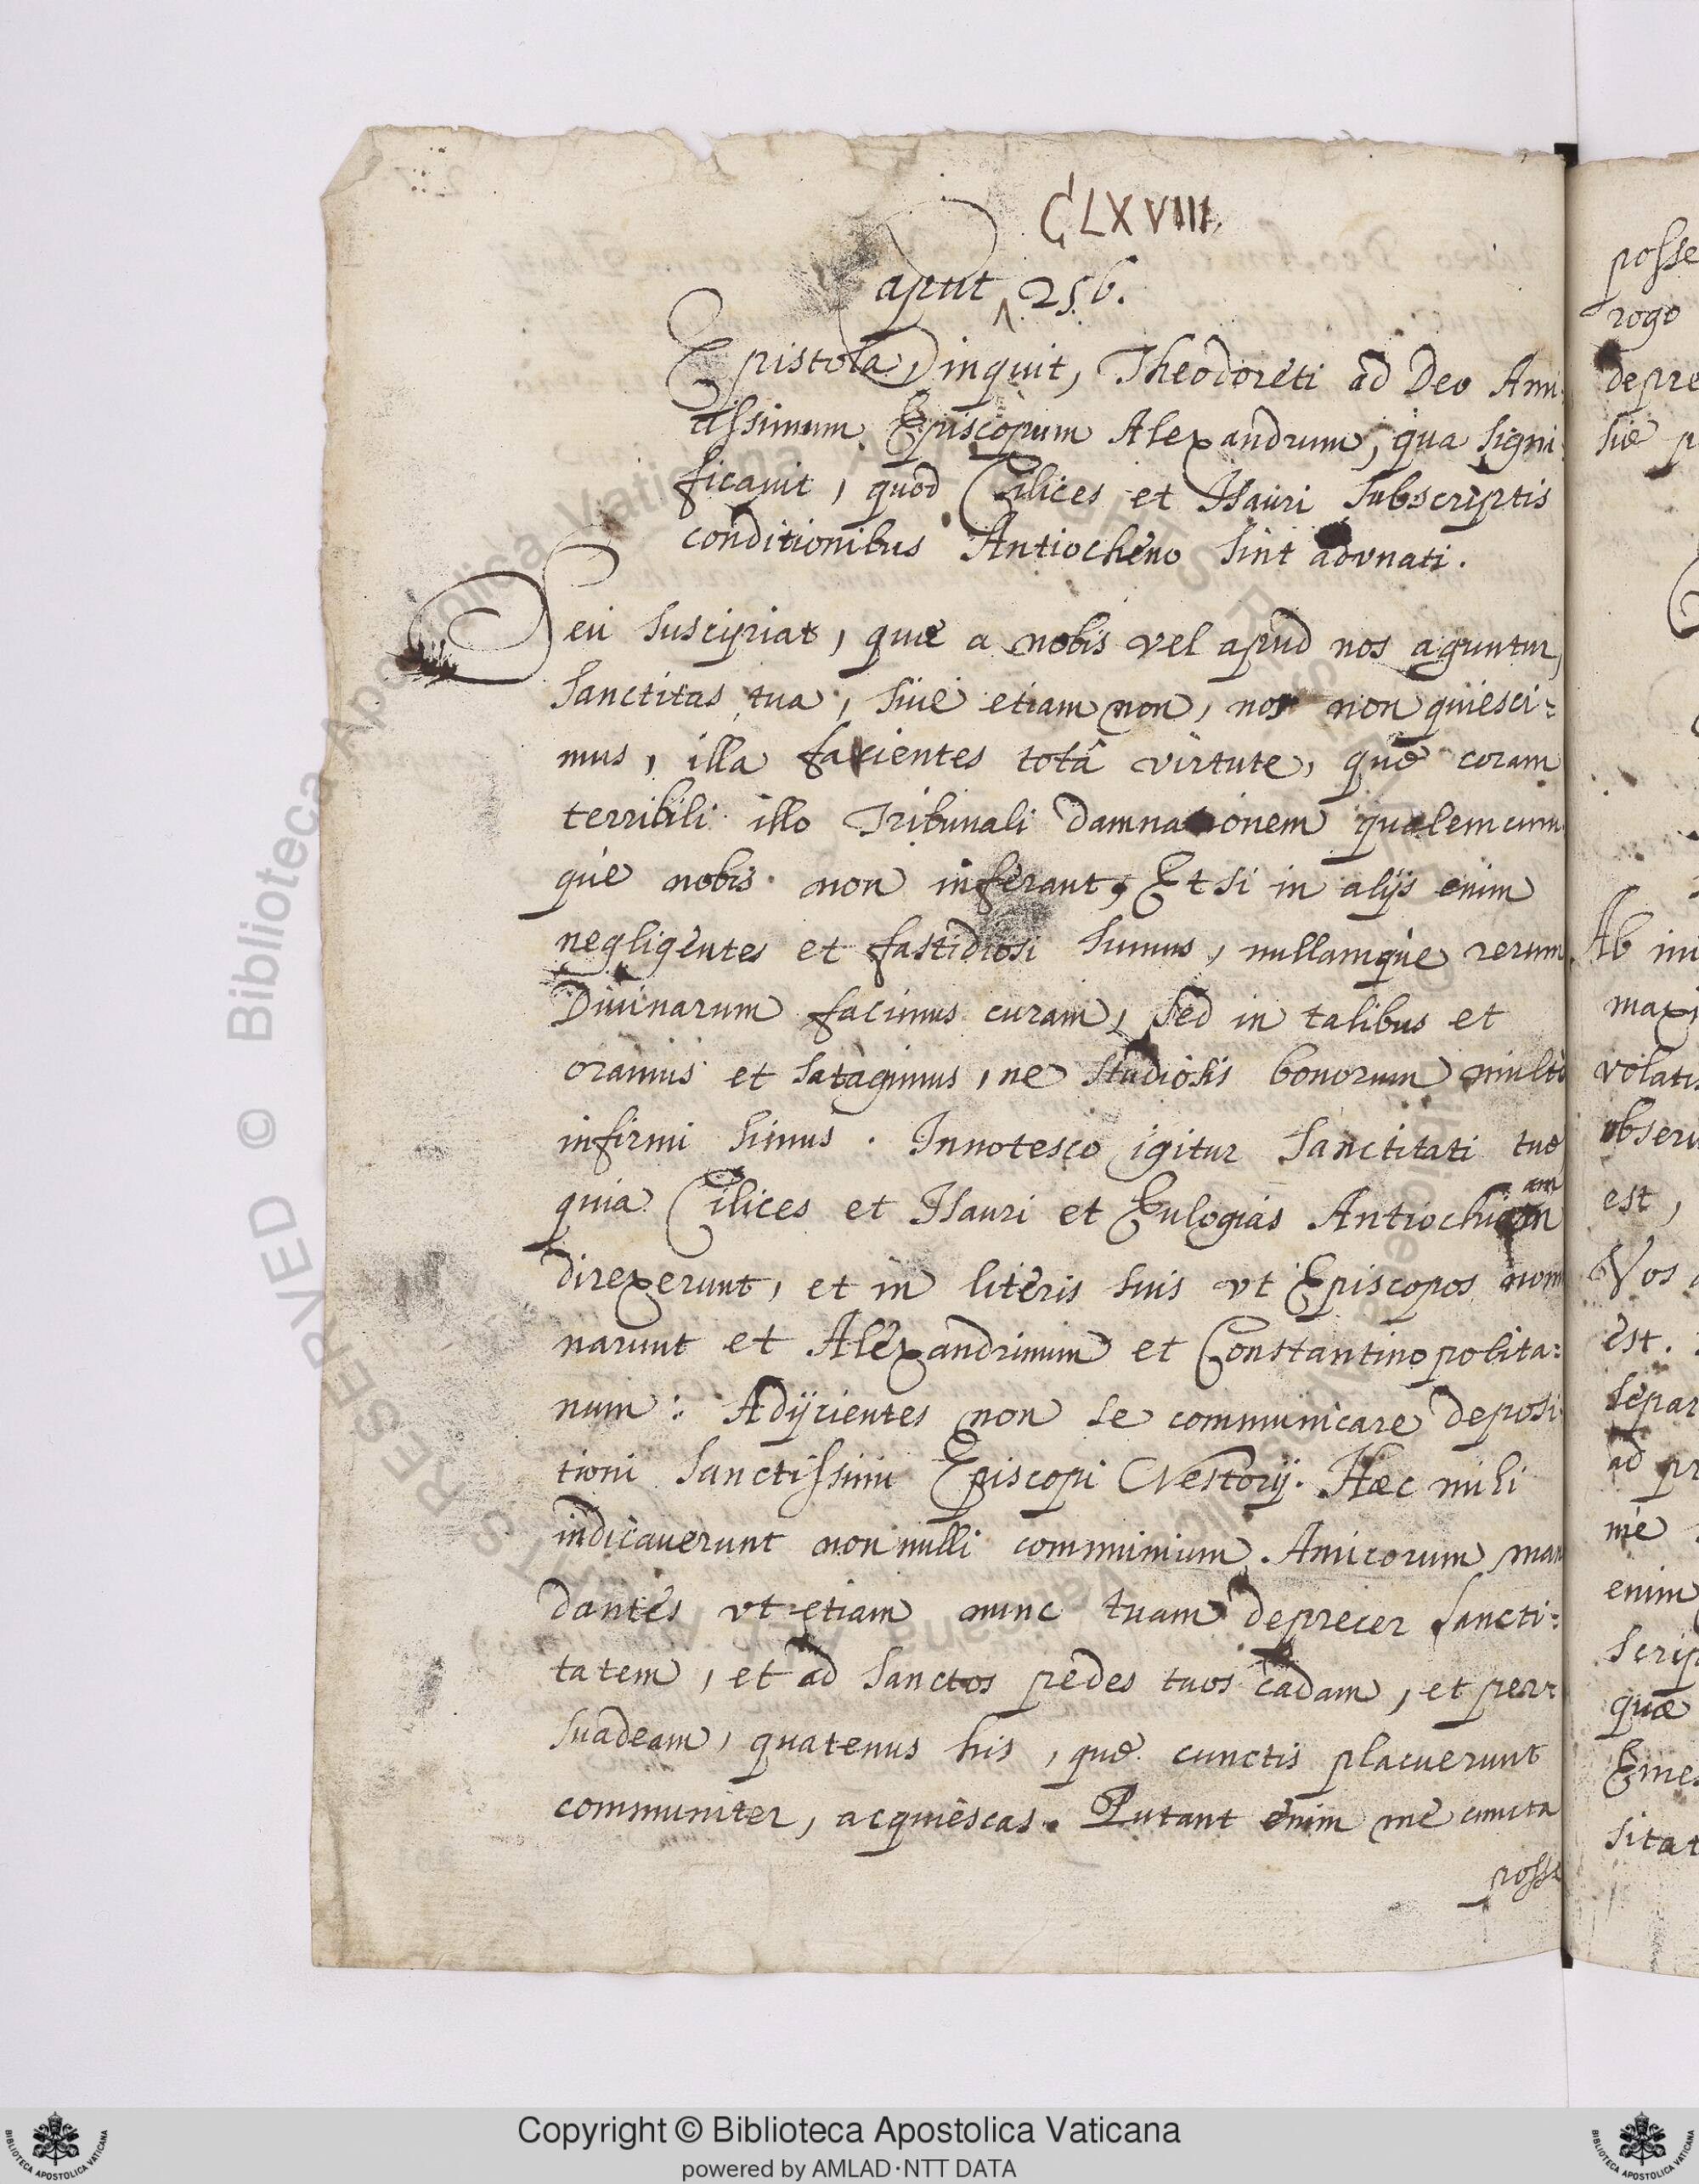 CLXVIII.
Caput 256.
Epistola, inquit, Theodoreti ad Deo Ami
cissimum Episcopum Alexandrum, qua signi
ficauit, quod Cilices et Isauri subscriptis
conditionibus Antiocheno sint advnati.
Seu suscipiat, que a nobis vel apud nos aguntur,
sanctitas tua, siue etiam non, nos non quiesci=
mus, illa facientes totâ virtute, que coram
terribili illo Tribunali damnationem qualemcum
que nobis non inferant, Etsi in alijs enim
negligentes et fastidiosi sumus, nullamque rerum
Diuinarum facimus curam, sed in talibus et
oramus et satagimus, ne studiosis bonorum multis
infirmi simus. Innotesco igitur sanctitati tue
quia Cilices et Isauri et Eulogias Antochiam
direxerunt, et in literis suis vt Episcopos nomi
narunt et Alexandrinum et Constantinopolita=
num: Adijcientes non se communicare deposi
tioni sanctissimi Episcopi Nestorij. Haec mihi
indicauerunt nonnulli communium Amicorum man
dantes vt etiam nunc tuam deprecer sancti=
tatem, et ad sanctos pedes tuos cadam, et per=
suadeam, quatenus his, que cunctis placuerunt
communiter, acquiescas. Putant enim me cuncta
posse
posse
rogo
depre
siue p
Ab ini
maxi
volati
obseru
est,
Vos
est.
separ
ad pr
me
enim
scrip
quæ
Emes
sitat
RESERVED © Biblioteca Apostolica Vaticana
Copyright © Biblioteca Apostolica Vaticana
powered by AMLAD·NTT DATA
BIBLIOTECA APOSTOLICA VATICANA
BIBLIOTECA APOSTOLICA VATICANA